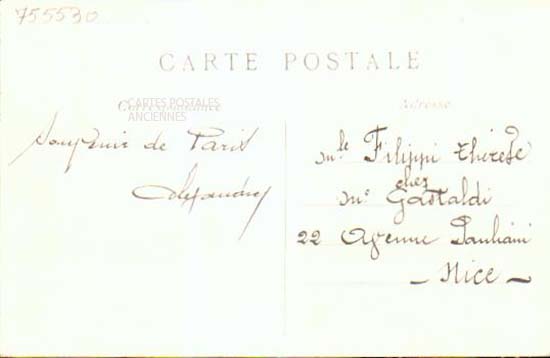 755530
CARTE POSTALE
Correspondance
CARTES POSTALES
ANCIENNES
Adresse
Souvenir de Paris
Alexandre
Mle Filippi Thérèse
chez
Mr Gastaldi
22 Avenue Pauliani
- Nice -